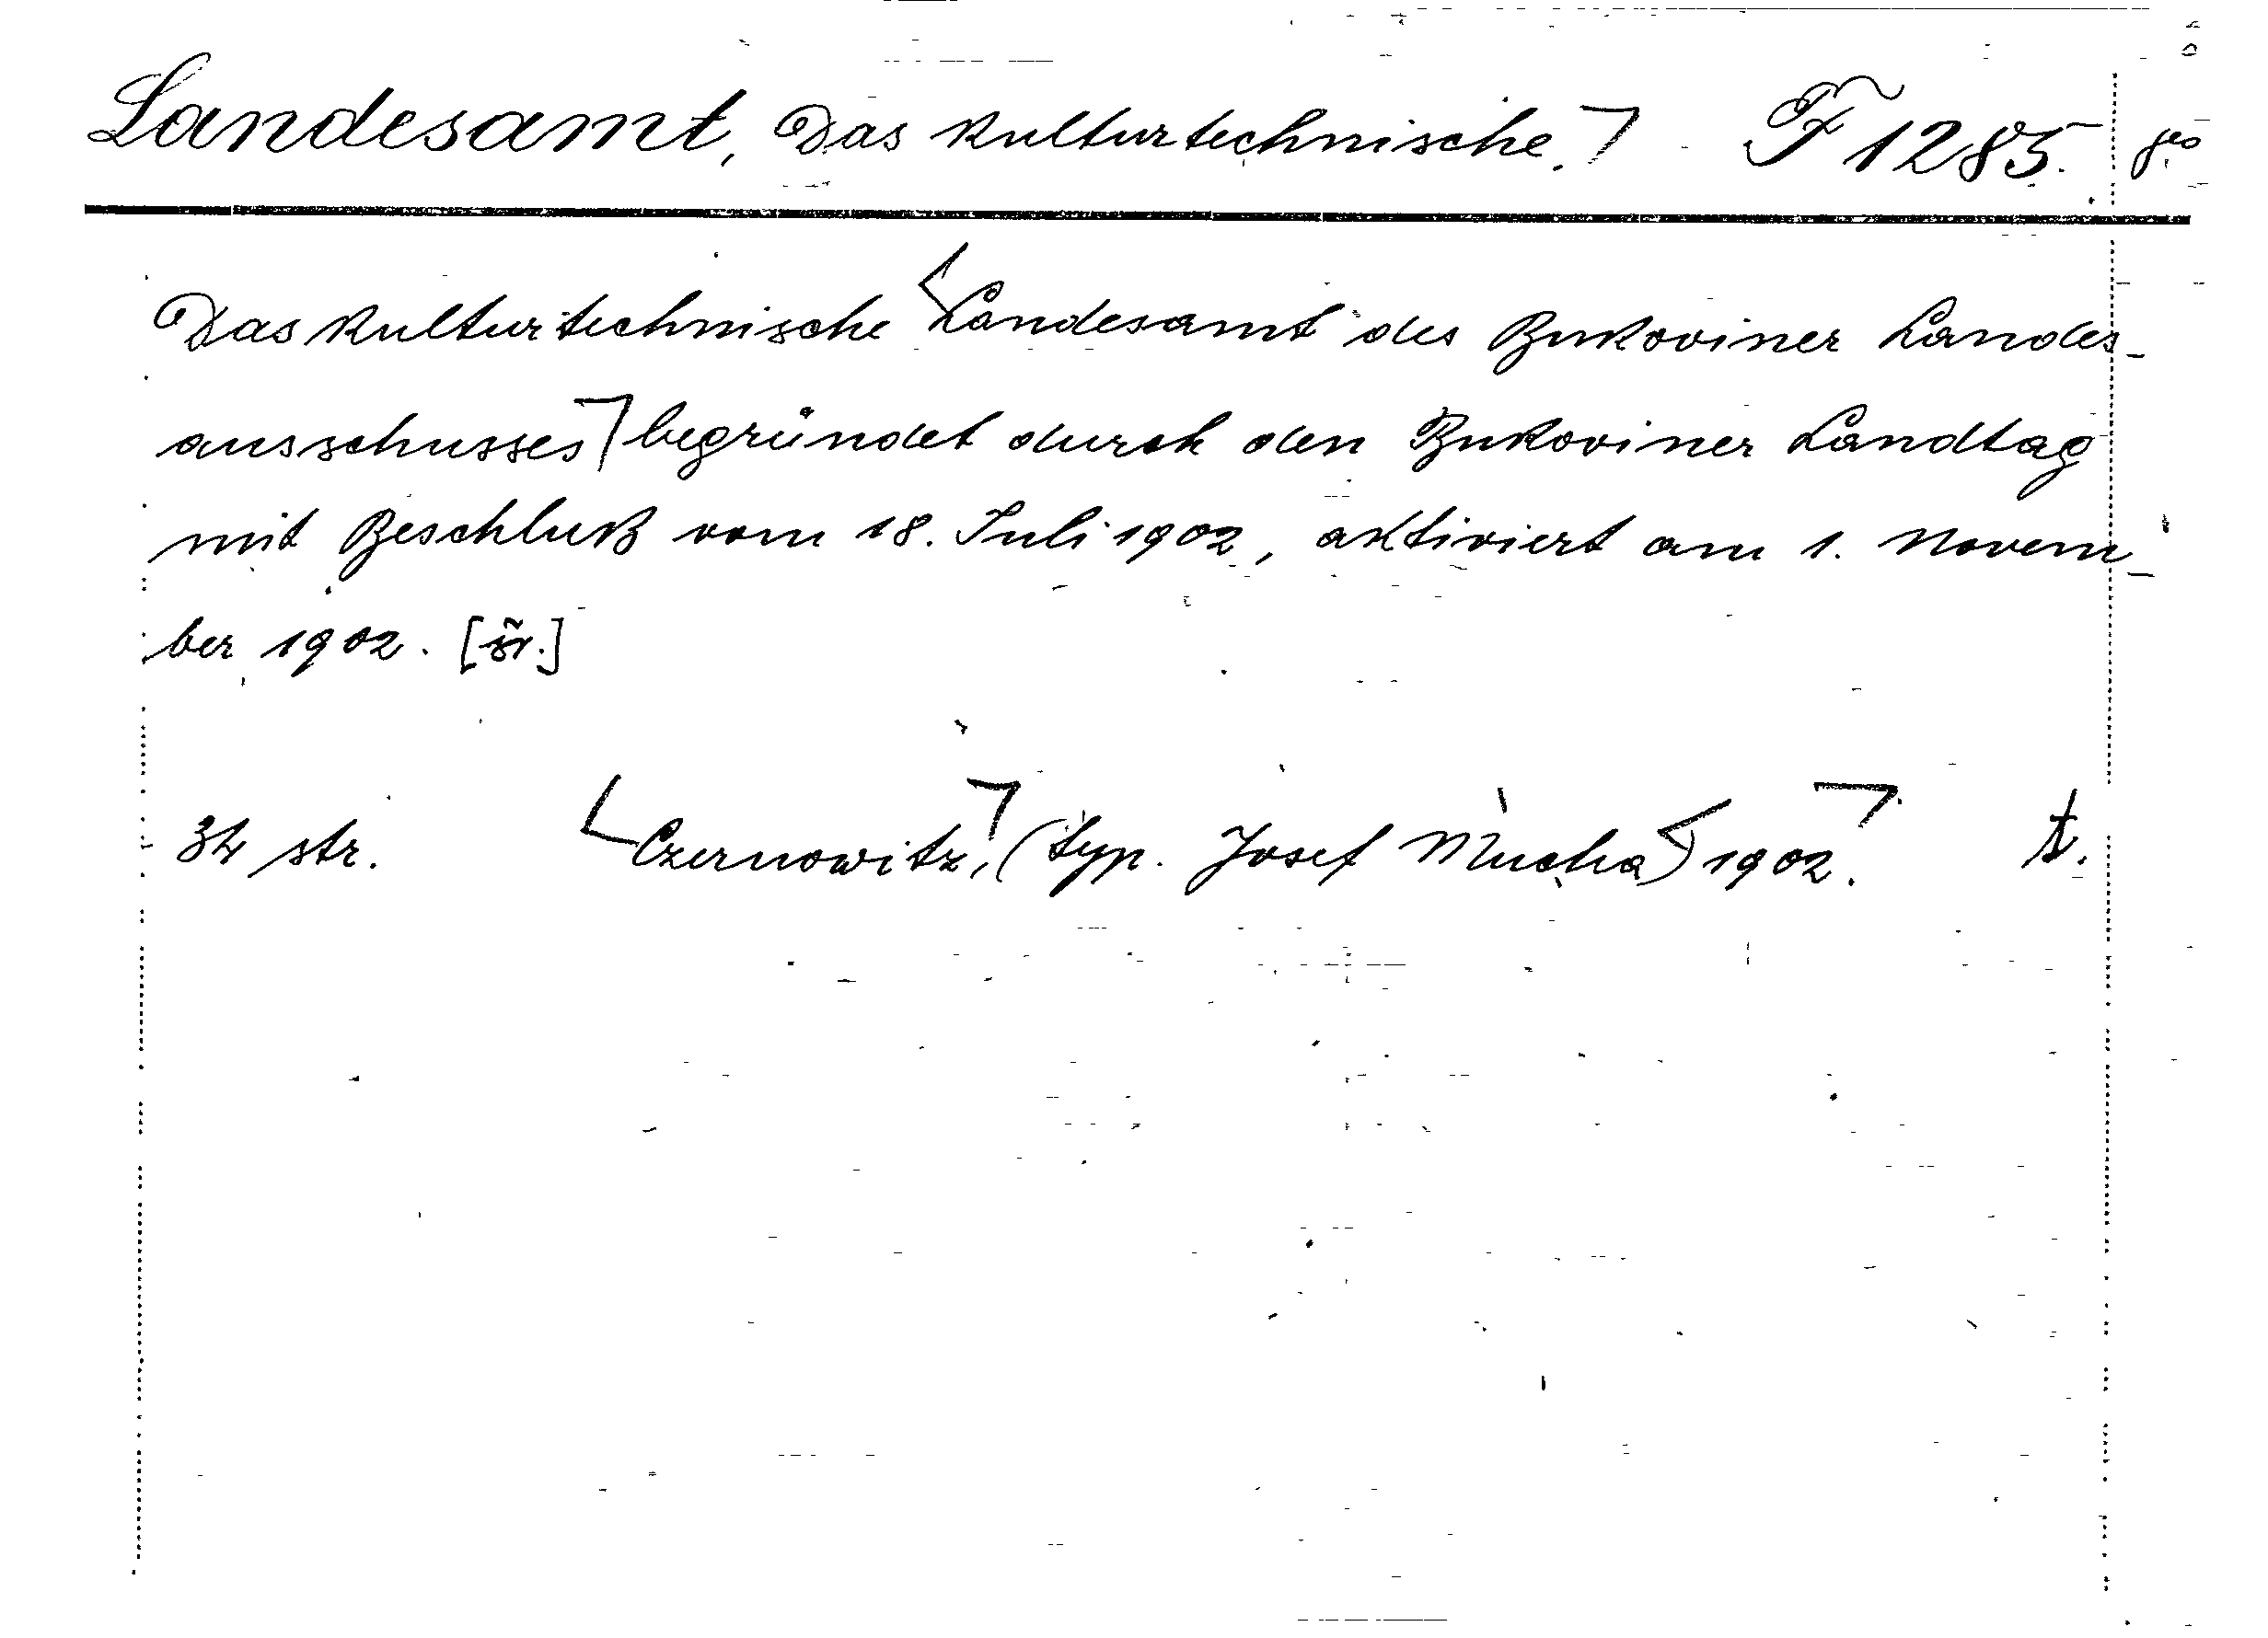 Landesamt, Das kulturtechnische. F 1285.
Das kulturtechnische Landesamt des Bukoviner Landes-
ausschusses begründet durch den Bukoviner Landtag
mit Beschluß vom 18. Juli 1902, aktiviert am 1. Novem-
ber 1902.
34 str. Czernowitz, (typ. Josef Mucha) 1902. tv.